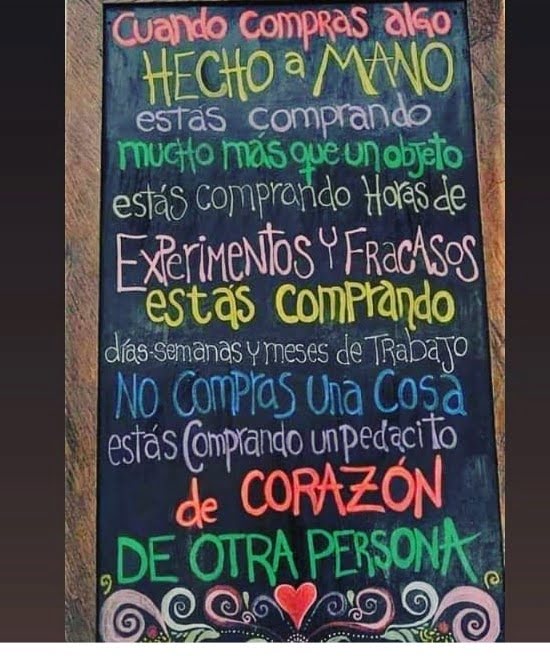 Cuando compras algo
HECHO a MANO
estás comprando
mucho más que un objeto
estás comprando Horas de
ExperiMENTOS Y FRACASOS
estás comprando
días-semanas y meses de TRabaJo
NO COMPRAS UNA COSA
estás Comprando un pedacito
de CORAZÓN
DE OTRA PERSONA